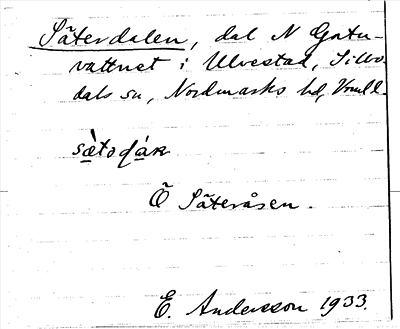 Säterdalen, dal N Gatu-
vattnet i Ulvestad, Sillbo-
dals sn, Nordmarks hd, Vrml.
sæ̀toɖáɴ
Ö Säteråsen.
E. Andersson 1933.